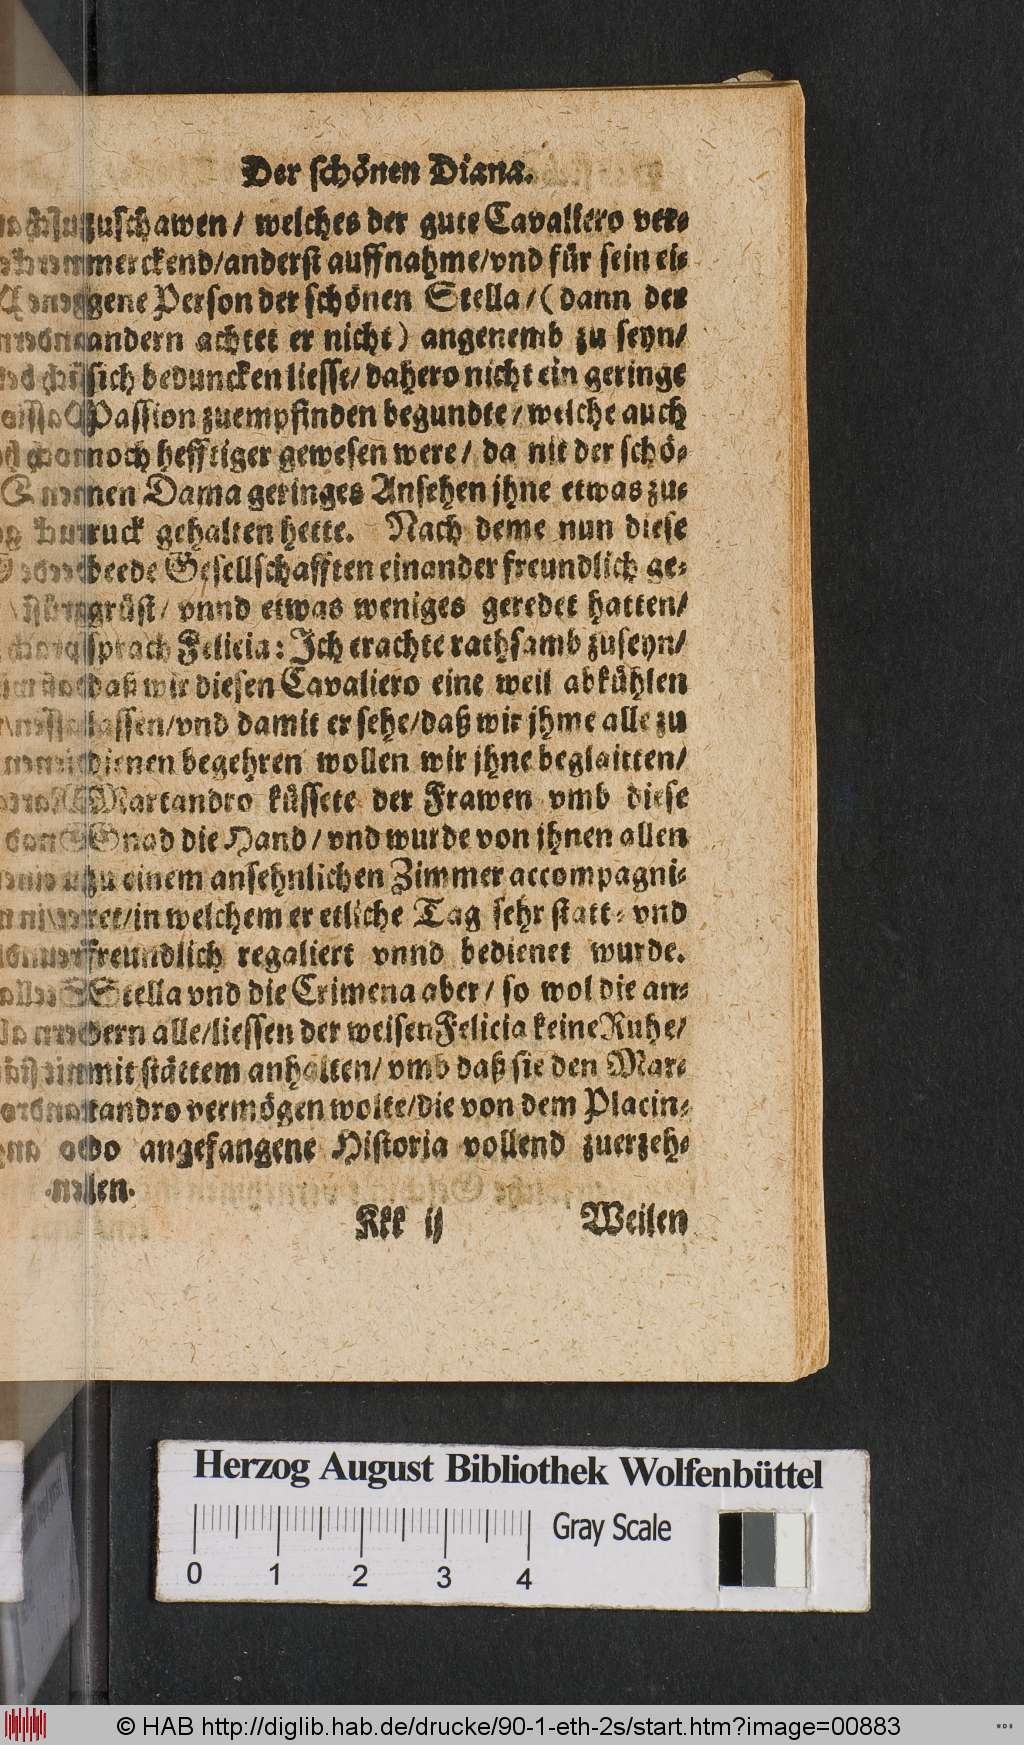 Der schönen Diana.
zuschawen / welches der gute Cavaliero ver-
merckend/anderst auffnahme/vnd für sein ei-
gene Person der schönen Stella/(dann der
andern achtet er nicht) angenemb zu seyn/
sich beduncken liesse/dahero nicht ein geringe
Passion zuempfinden begundte/welche auch
noch hefftiger gewesen were/ da nit der schö-
nen Dama geringes Ansehen jhne etwas zu-
ruck gehalten hette. Nach deme nun diese
beede Gesellschafften einander freundlich ge-
grüst/ vnnd etwas weniges geredet hatten/
sprach Felicia: Ich erachte rathsamb zuseyn/
daß wir diesen Cavaliero eine weil abkühlen
lassen/vnd damit er sehe/daß wir jhme alle zu
dienen begehren wollen wir jhne beglaitten/
Martandro küssete der Frawen vmb diese
Gnad die Hand/vnd wurde von jhnen allen
zu einem ansehnlichen Zimmer accompagni-
ret/in welchem er etliche Tag sehr statt- vnd
freundlich regaliert vnnd bedienet wurde.
Stella vnd die Crimena aber/ so wol die an-
dern alle/liessen der weisen Felicia keine Ruhe/
mit stättem anhalten/vmb daß sie den Mar-
tandro vermögen wolte/die von dem Placin-
do angefangene Historia vollend zuerzeh-
len.
Kkk ij Weilen
Herzog August Bibliothek Wolfenbüttel
Gray Scale
0 1 2 3 4
© HAB http://diglib.hab.de/drucke/90-1-eth-2s/start.htm?image=00883